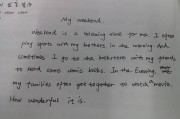 My weekend.
Weekend is a relaxing time for me I often
play sports with my brothers in the morning And
sometimes I go to the bookroom with my friends
to read some comic books. In the Evening,
my families often get together to watch a movie.
How wonderful it is.